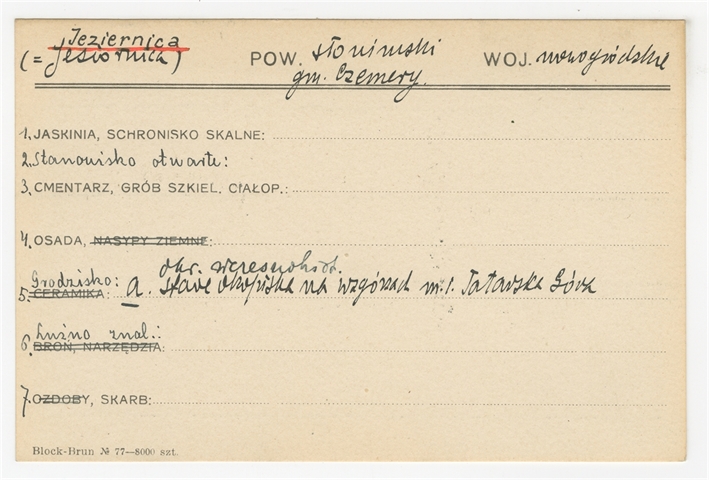 Jeziernica
(= Jesiornica) POW. słonimski WOJ. nowogródzkie
gm. Czemery.
1. JASKINIA, SCHRONISKO SKALNE:
2. Stanowisko otwarte:
3. CMENTARZ, GRÓB SZKIEL. CIAŁOP.:
4. OSADA, NASYPY ZIEMNE:
okr. wczesnohist.
Grodzisko: a. stare okopiska na wzgórzach m. i. Tatarska Góra
5. CERAMIKA:
Luźno znal.:
6. BROŃ, NARZĘDZIA:
7. OZDOBY, SKARB:
Block-Brun № 77—8000 szt.